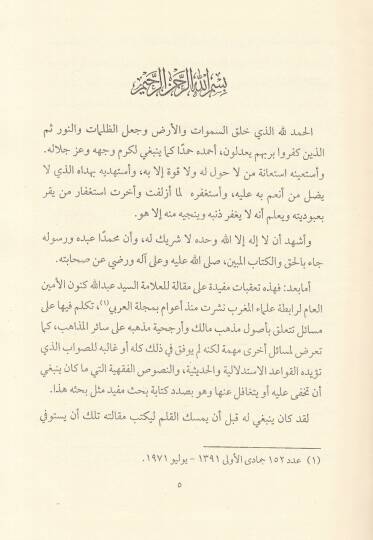 بسم الله الرحمن الرحيم
الحمد لله الذي خلق السموات والأرض وجعل الظلمات والنور ثم
الذين كفروا بربهم يعدلون، أحمده حمدًا كما ينبغي لكرم وجهه وعز جلاله.
وأستعينه استعانة من لا حول له ولا قوة إلا به، وأستهديه بهداه الذي لا
يضل من أنعم به عليه، وأستغفره لما أزلفت وأخرت استغفار من يقر
بعبوديته ويعلم أنه لا يغفر ذنبه وينجيه منه إلا هو.
وأشهد أن لا إله إلا الله وحده لا شريك له، وأن محمدًا عبده ورسوله
جاء بالحق والكتاب المبين، صلى الله عليه وعلى آله ورضي عن صحابته.
أمابعد: فهذه تعقبات مفيدة على مقالة للعلامة السيد عبدالله كنون الأمين
العام لرابطة علماء المغرب نشرت منذ أعوام بمجلة العربي(١)، تكلم فيها على
مسائل تتعلق بأصول مذهب مالك وأرجحية مذهبه على سائر المذاهب، كما
تعرض لمسائل أخرى مهمة لكنه لم يوفق في ذلك كله أو غالبه للصواب الذي
تؤيده القواعد الاستدلالية والحديثية، والنصوص الفقهية التي ما كان ينبغي
أن تخفى عليه أو يتغافل عنها وهو بصدد كتابة بحث مفيد مثل بحثه هذا.
لقد كان ينبغي له قبل أن يمسك القلم ليكتب مقالته تلك أن يستوفي
(١) عدد ١٥٢ جمادى الأولى ١٣٩١ - يوليو ١٩٧١.
٥